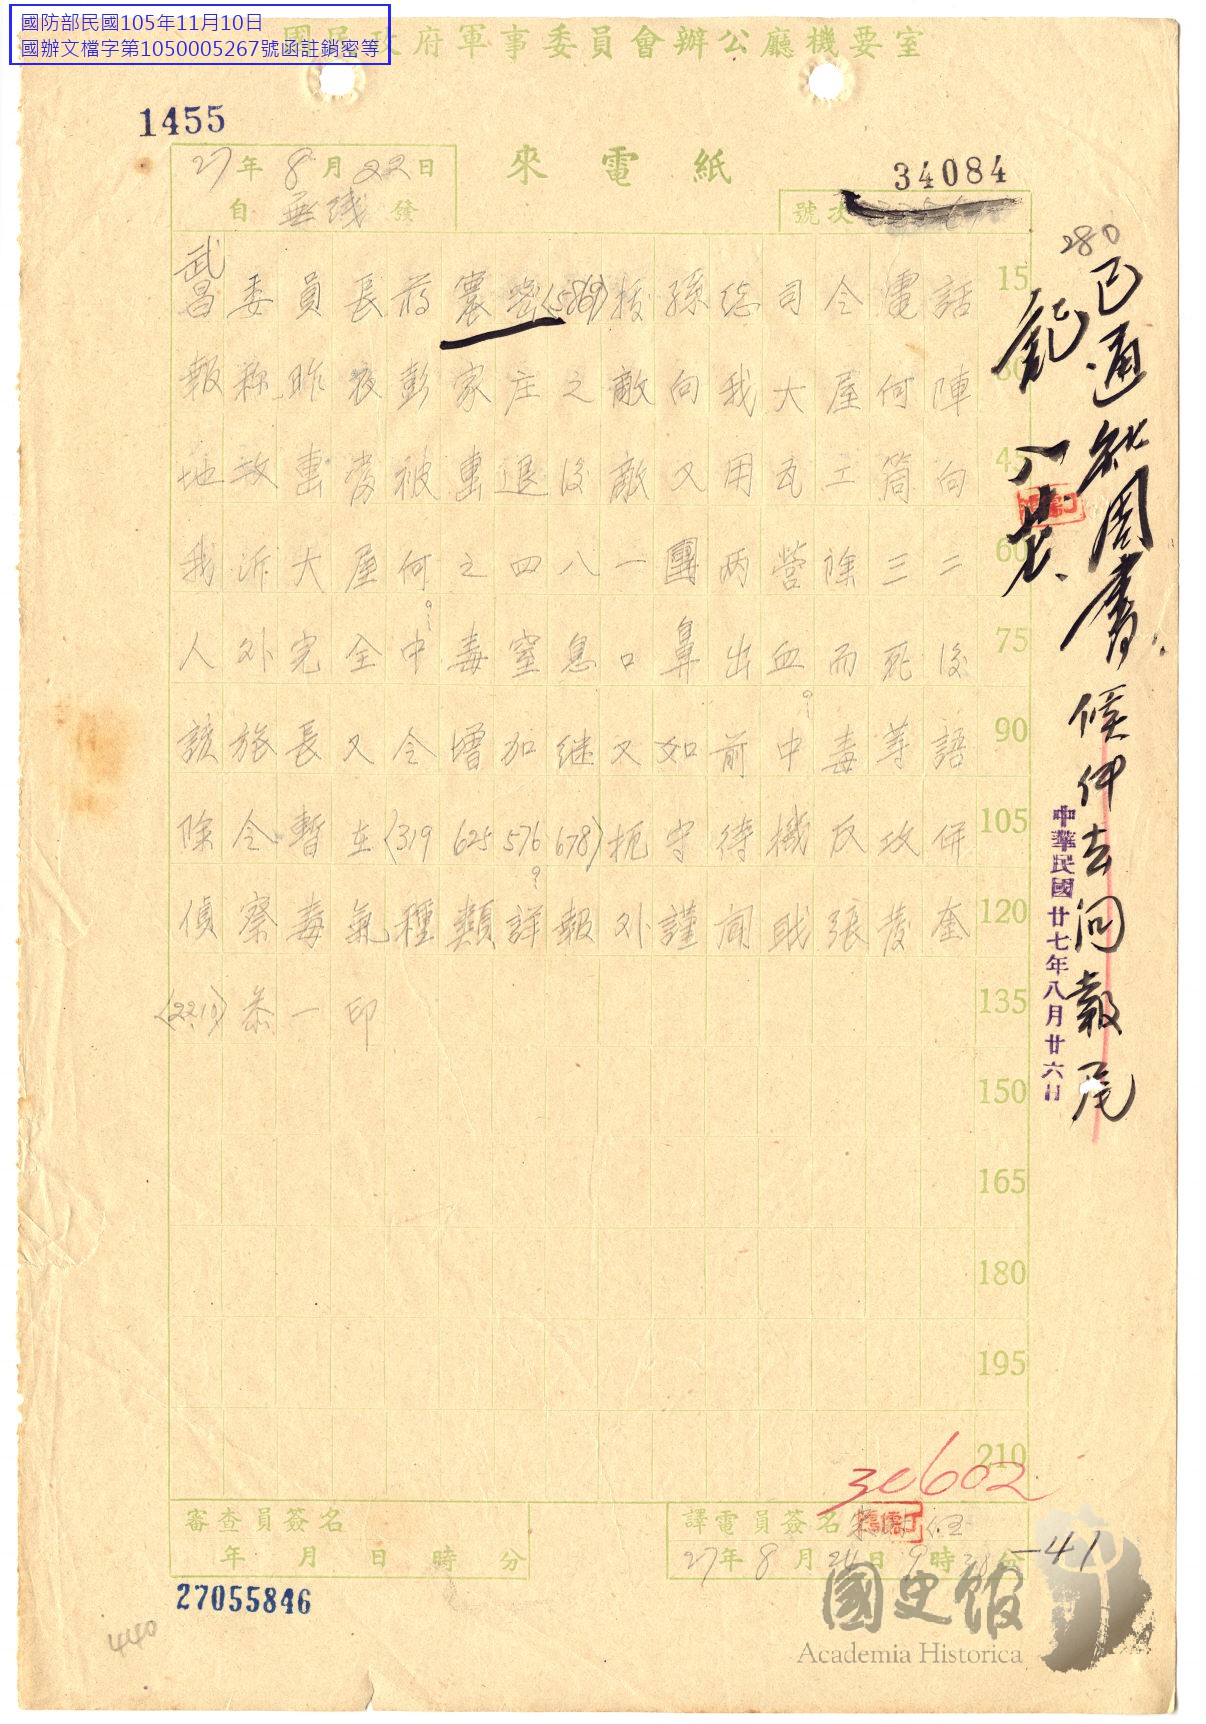 國防部民國105年11月10日
國辦文檔字第1050005267號函註銷密等
國民政府軍事委員會辦公廳機要室
1455
27年8月22日
來電紙
34084
自無線發
號次
280
武昌委員長蔣襄密(5869)接孫總司令電話
15
報稱昨夜彭家庄之敵向我大屋何陣
30
地放毒後被擊退後敵又用瓦工筒向
45
我派大屋何之四八一團兩營除三二
60
人外完全中毒窒息口鼻出血而死後
75
該旅長又令增加继又如前中毒等語
90
除令暫在(319 625 576 678)扼守待機反攻併
105
偵察毒氣種類詳報外謹聞職張發奎
120
(2210)叅一印
135
150
165
180
195
210
已通知周書
候伊去问報尾
中華民國廿七年八月廿六日
30602
審查員簽名
年月日時分
譯電員簽名
27年8月24日9時分
-41
27055846
440
國史館
Academia Historica